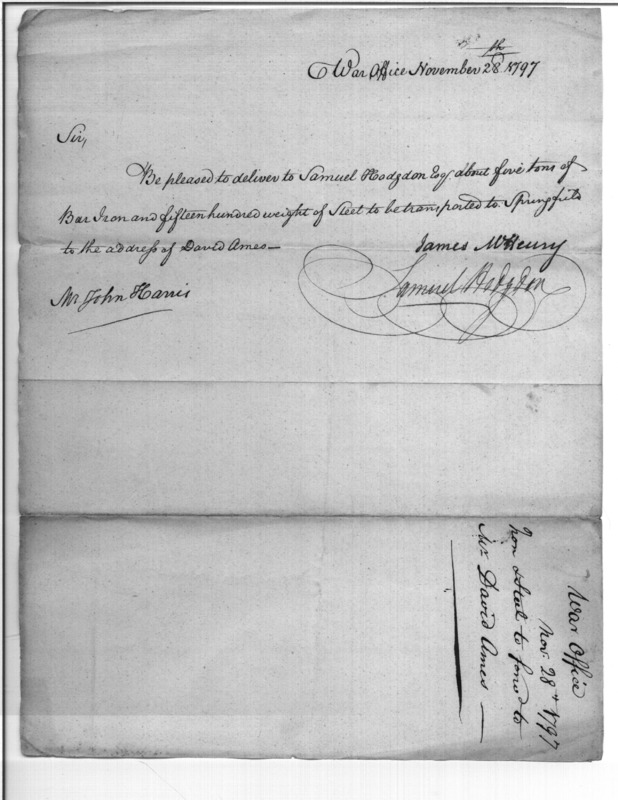 War Office November 28th 1797
Sir,
Be pleased to deliver to Samuel Hodgdon Esq. about five tons of
Bar Iron and fifteen hundred weight of Steel to be transported to Springfield
to the address of David Ames—
James McHenry
Samuel Hodgdon
Mr John Harris
War Office
Nov. 28th 1797
Iron & Steel to send to
Mr. David Ames—